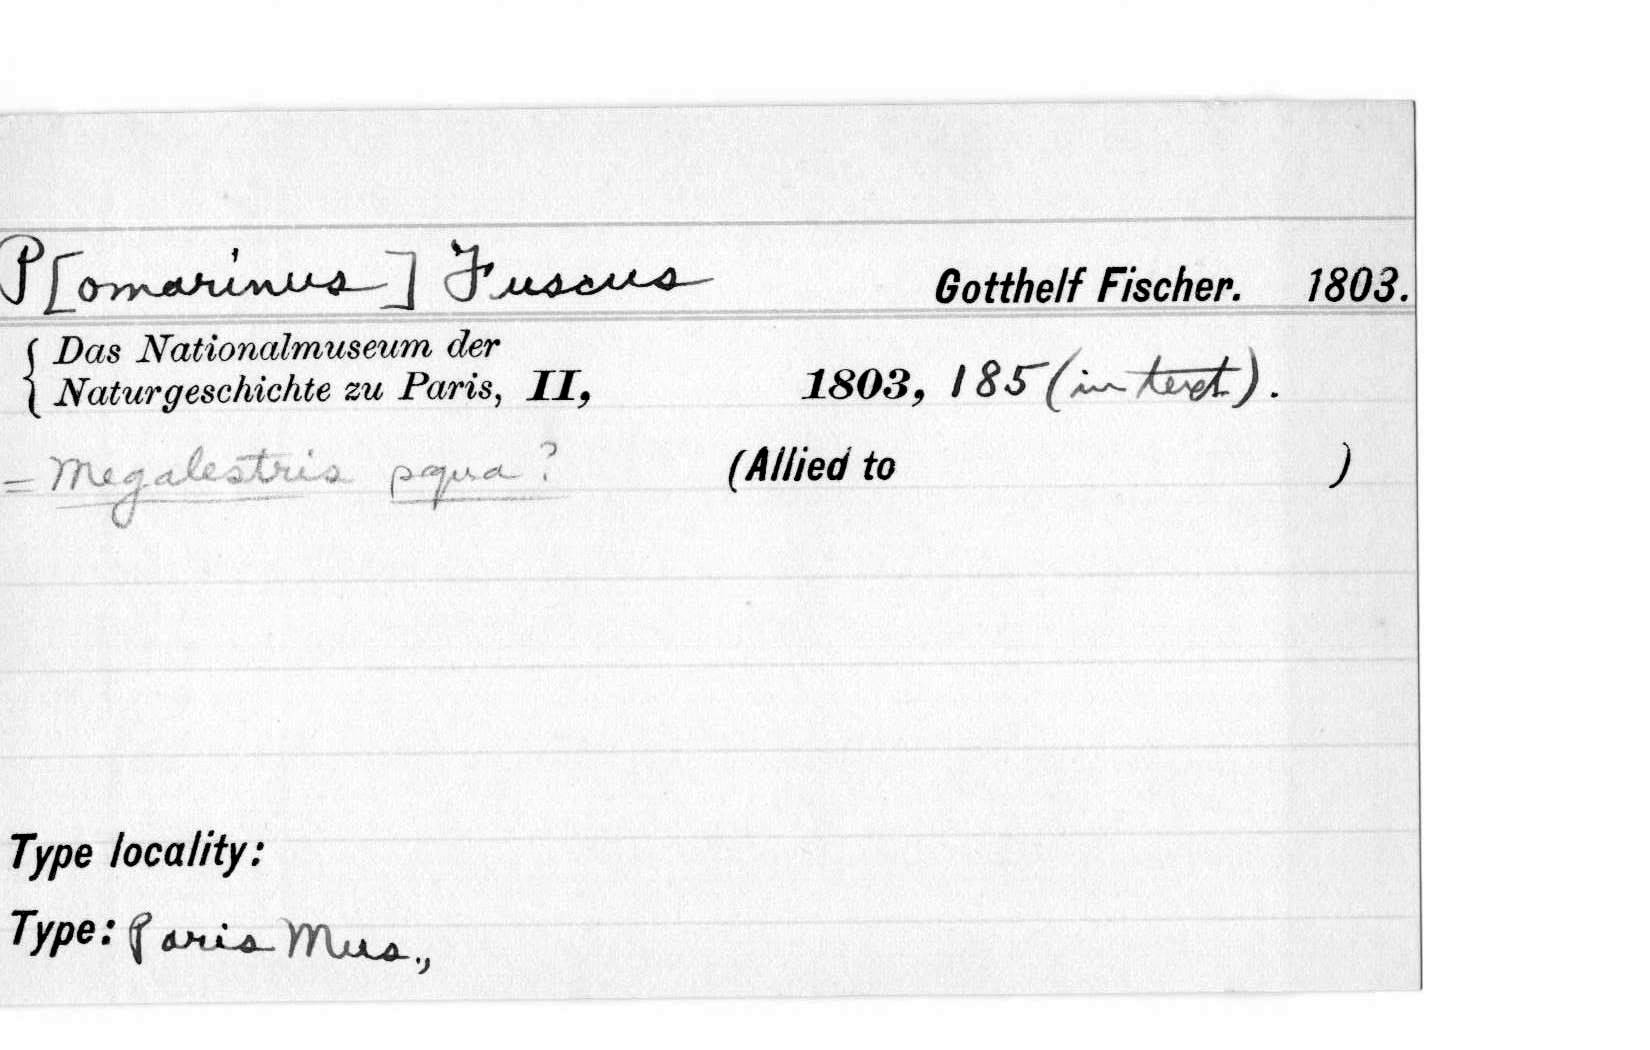 P[omarinus] Fuscus Gotthelf Fischer. 1803.
Das Nationalmuseum der
Naturgeschichte zu Paris, II, 1803, 185 (in text).
= Megalestris ? (Allied to )
Type locality:
Type: Paris Mus.,